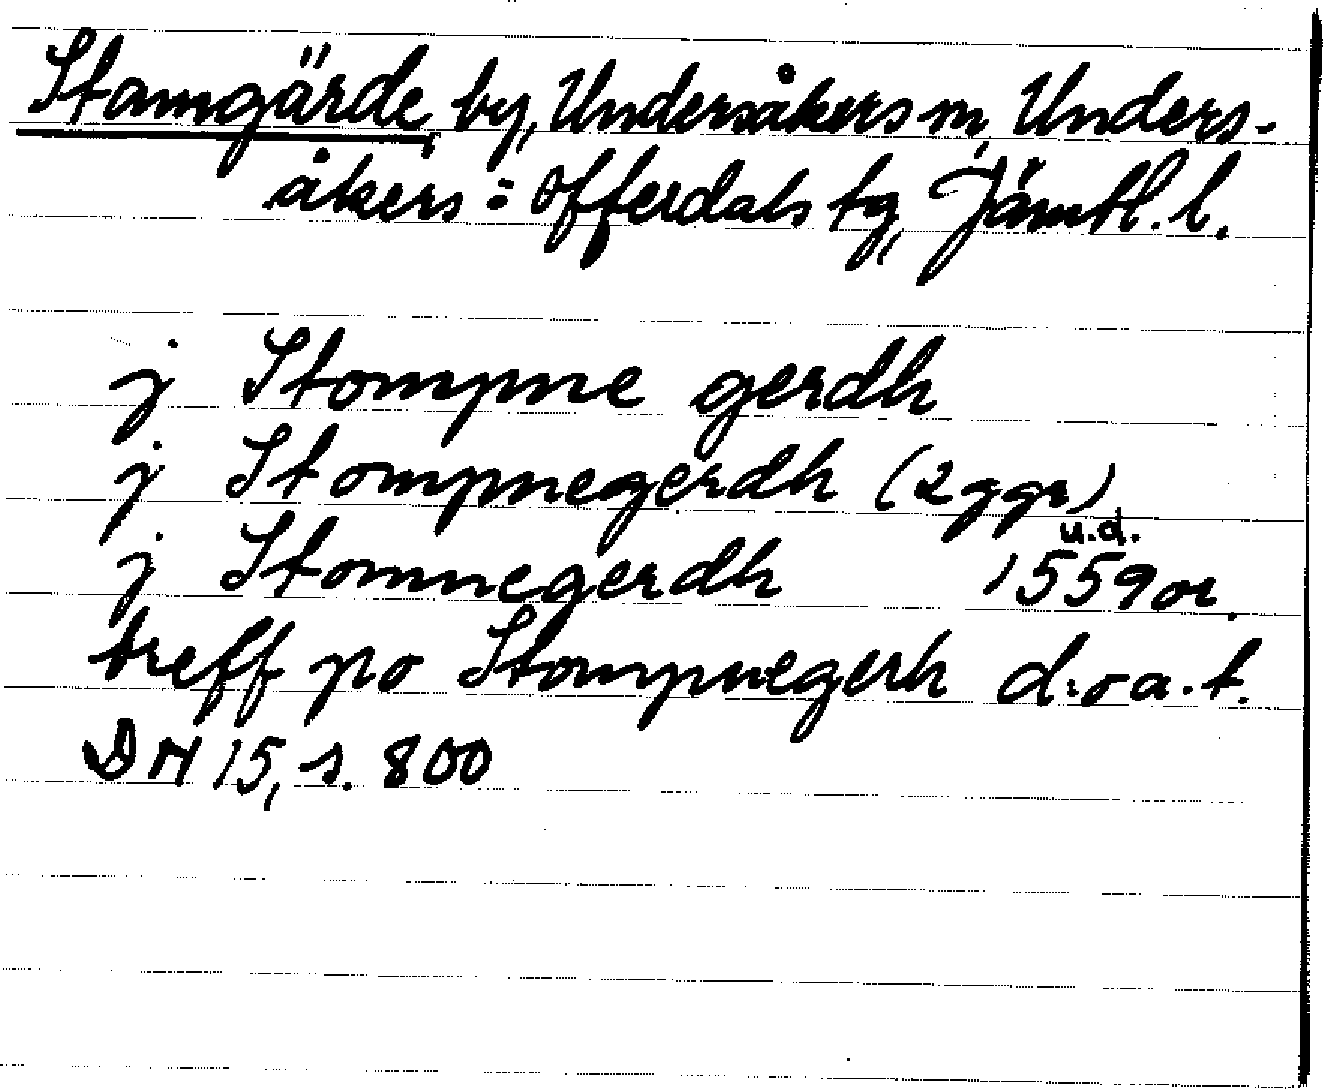 Stamgärde, by, Undersåkers sn, Unders-
åkers = Offerdals tg, Jämtl. l.
j Stompne gerdh
j Stompnegerdh (2 ggr)
j Stomnegerdh u.d. 1559 or.
treff po Stompnegerh d:o a.t.
DN 15, s. 800